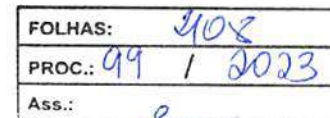 FOLHAS: 408
PROC.: 99 / 2023
Ass.: